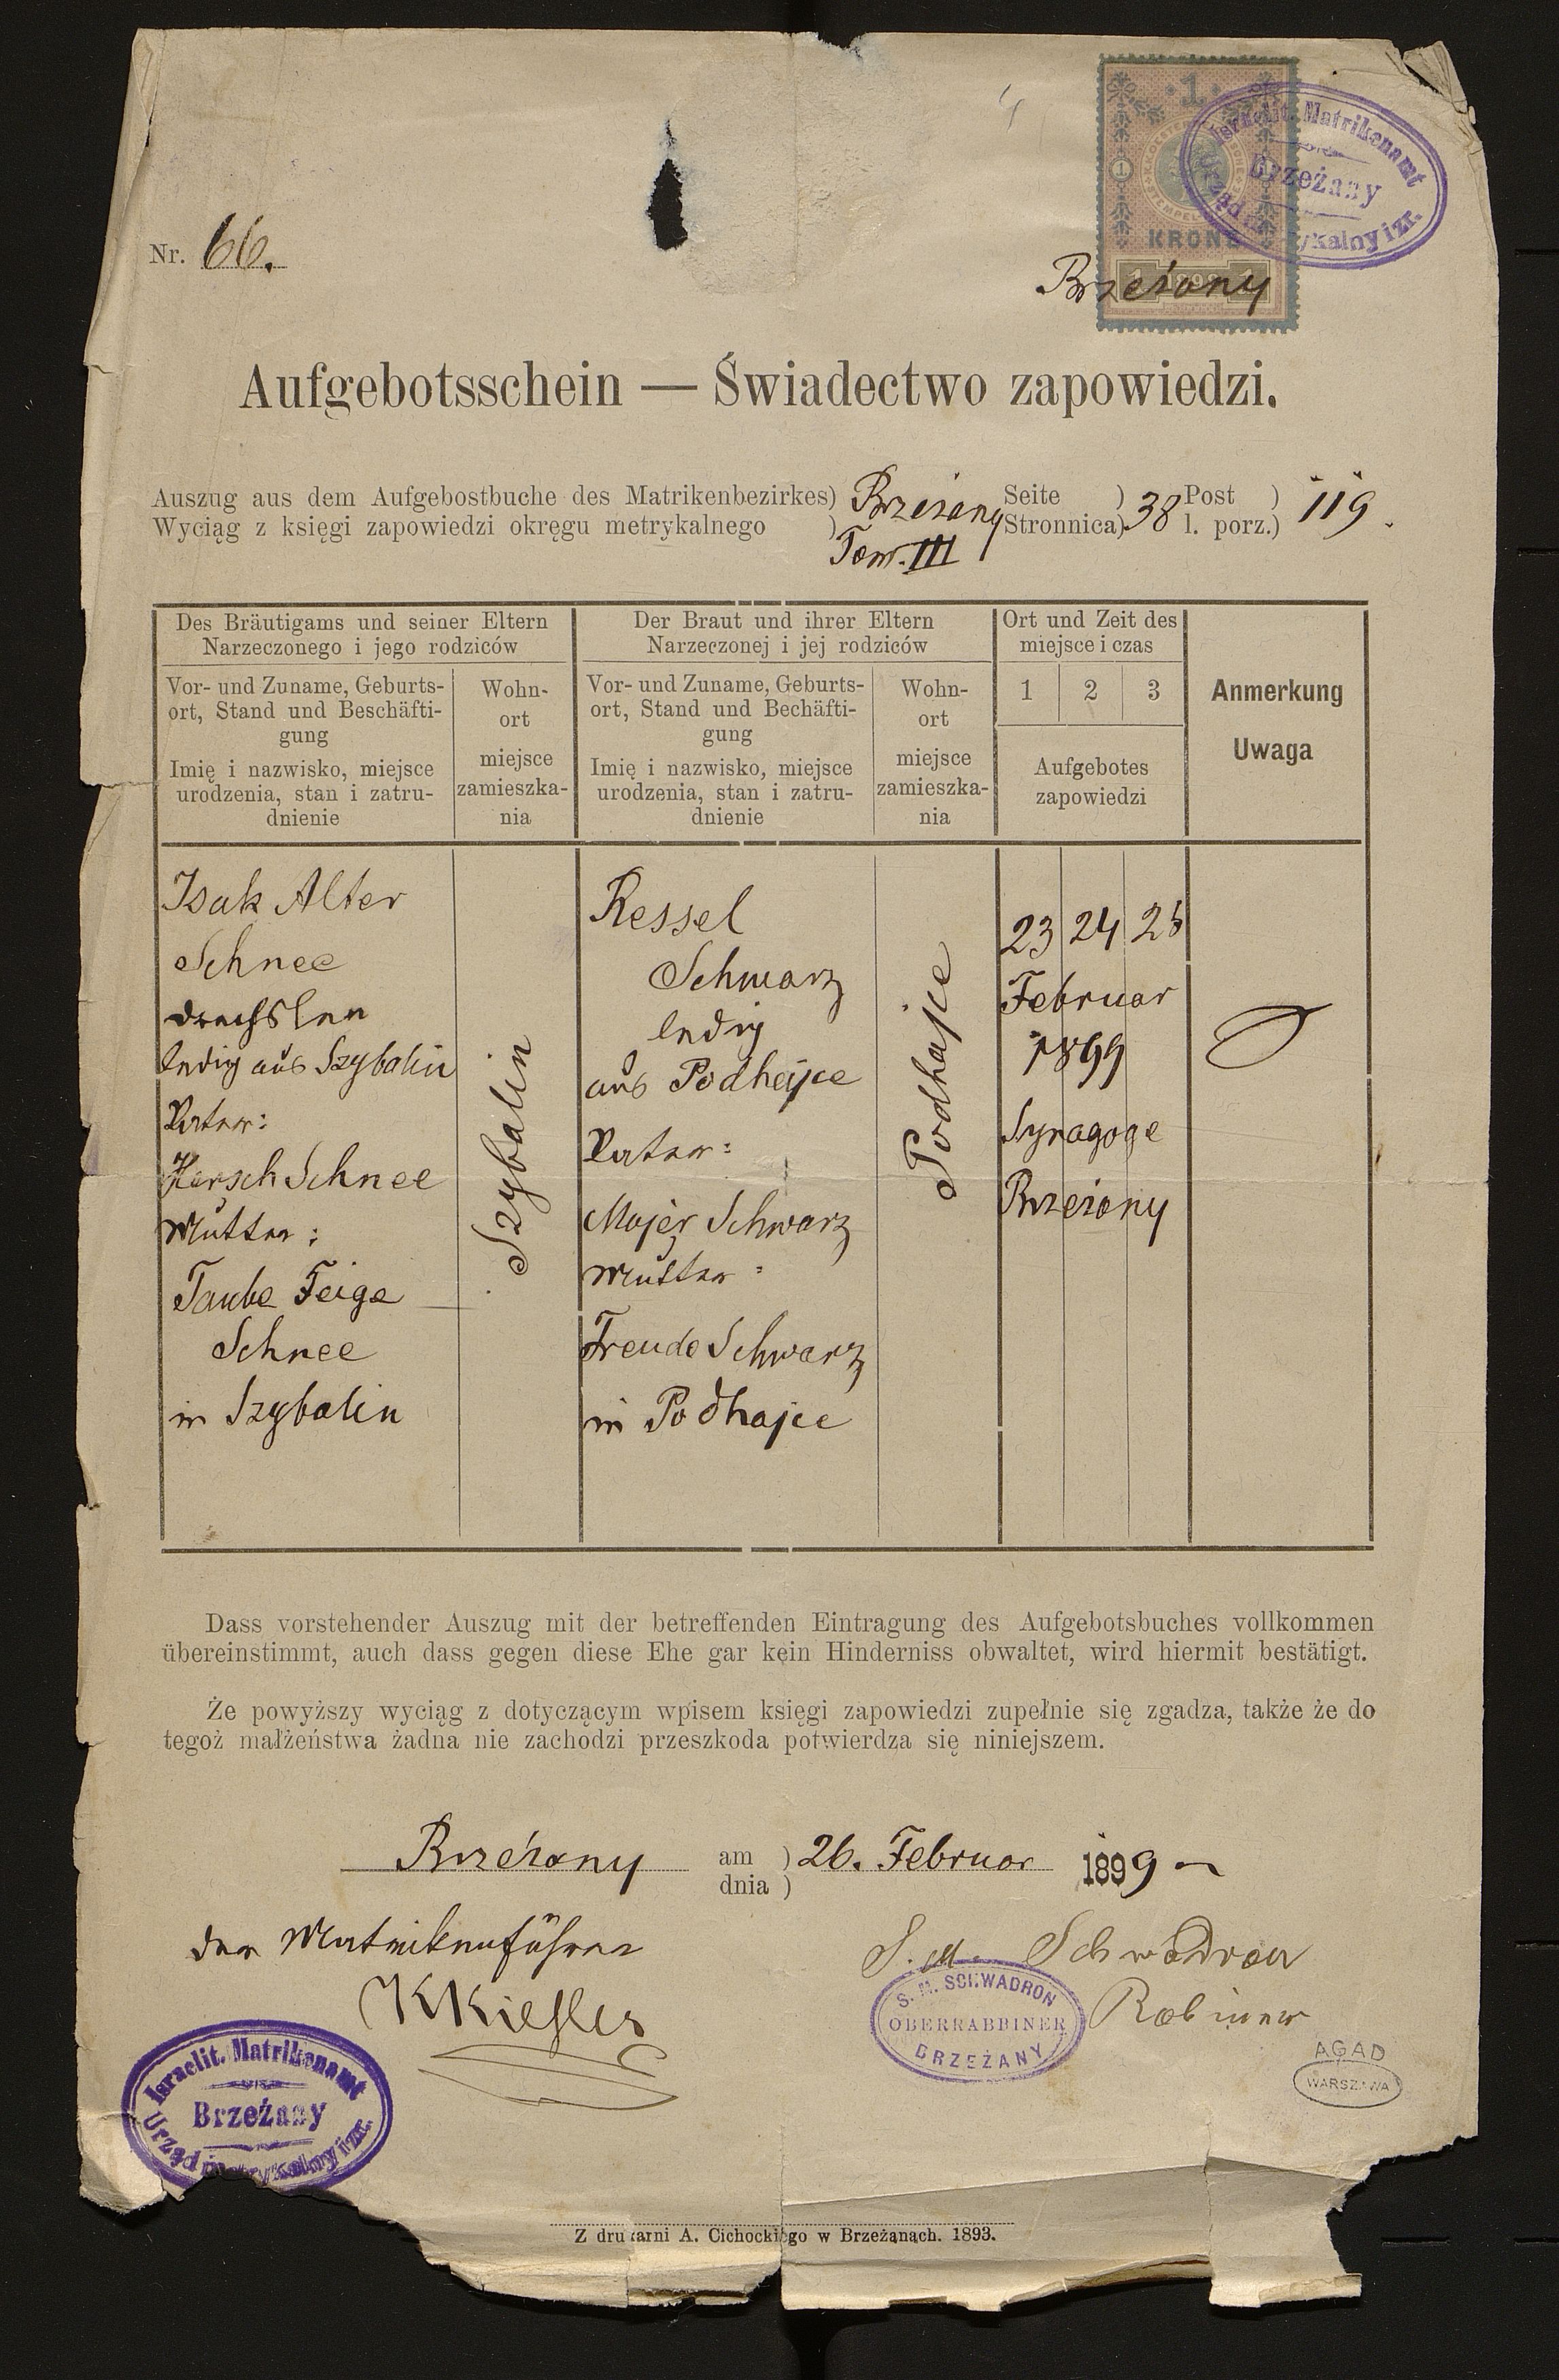 1
KRONE
1 1898 1
Israelit. Matrikenamt
Brzeżany
Nr. 66.
Brzeżany
Aufgebotsschein — Świadectwo zapowiedzi.
Auszug aus dem Aufgebostbuche des Matrikenbezirkes) Brzeżany Seite ) 38 Post ) 119.
Wyciąg z księgi zapowiedzi okręgu metrykalnego ) Stronnica) l. porz.)
Tom. III
Des Bräutigams und seiner Eltern
Narzeczonego i jego rodziców
Vor- und Zuname, Geburts-
ort, Stand und Beschäfti-
gung
Imię i nazwisko, miejsce
urodzenia, stan i zatru-
dnienie
Wohn-
ort
miejsce
zamieszka-
nia
Der Braut und ihrer Eltern
Narzeczonej i jej rodziców
Vor- und Zuname, Geburts-
ort, Stand und Bechäfti-
gung
Imię i nazwisko, miejsce
urodzenia, stan i zatru-
dnienie
Wohn-
ort
miejsce
zamieszka-
nia
Ort und Zeit des
miejsce i czas
1 2 3
Aufgebotes
zapowiedzi
Anmerkung
Uwaga
Isak Alter
Schnee
ledig aus Szybalin
Vater:
Hersch Schnee
Mutter:
Taube Feige
Schnee
in Szybalin
Szybalin
Ressel
Schwarz
ledig
aus Podhajce
Vater:
Majer Schwarz
Mutter:
Freude Schwarz
in Podhajce
Podhajce
23 24 25
Februar
1899
Synagoge
Brzeżany
Dass vorstehender Auszug mit der betreffenden Eintragung des Aufgebotsbuches vollkommen
übereinstimmt, auch dass gegen diese Ehe gar kein Hinderniss obwaltet, wird hiermit bestätigt.
Że powyższy wyciąg z dotyczącym wpisem księgi zapowiedzi zupełnie się zgadza, także że do
tegoż małżeństwa żadna nie zachodzi przeszkoda potwierdza się niniejszem.
Brzeżany am ) 26. Februar 1899
dnia )
der Matrikenführer
S. M. Schwadron
Rabiner
S. M. SCHWADRON
OBERRABBINER
BRZEŻANY
Israelit. Matrikenamt
Brzeżany
Urząd metrykalny izr.
AGAD
WARSZAWA
Z drukarni A. Cichockiego w Brzeżanach. 1893.